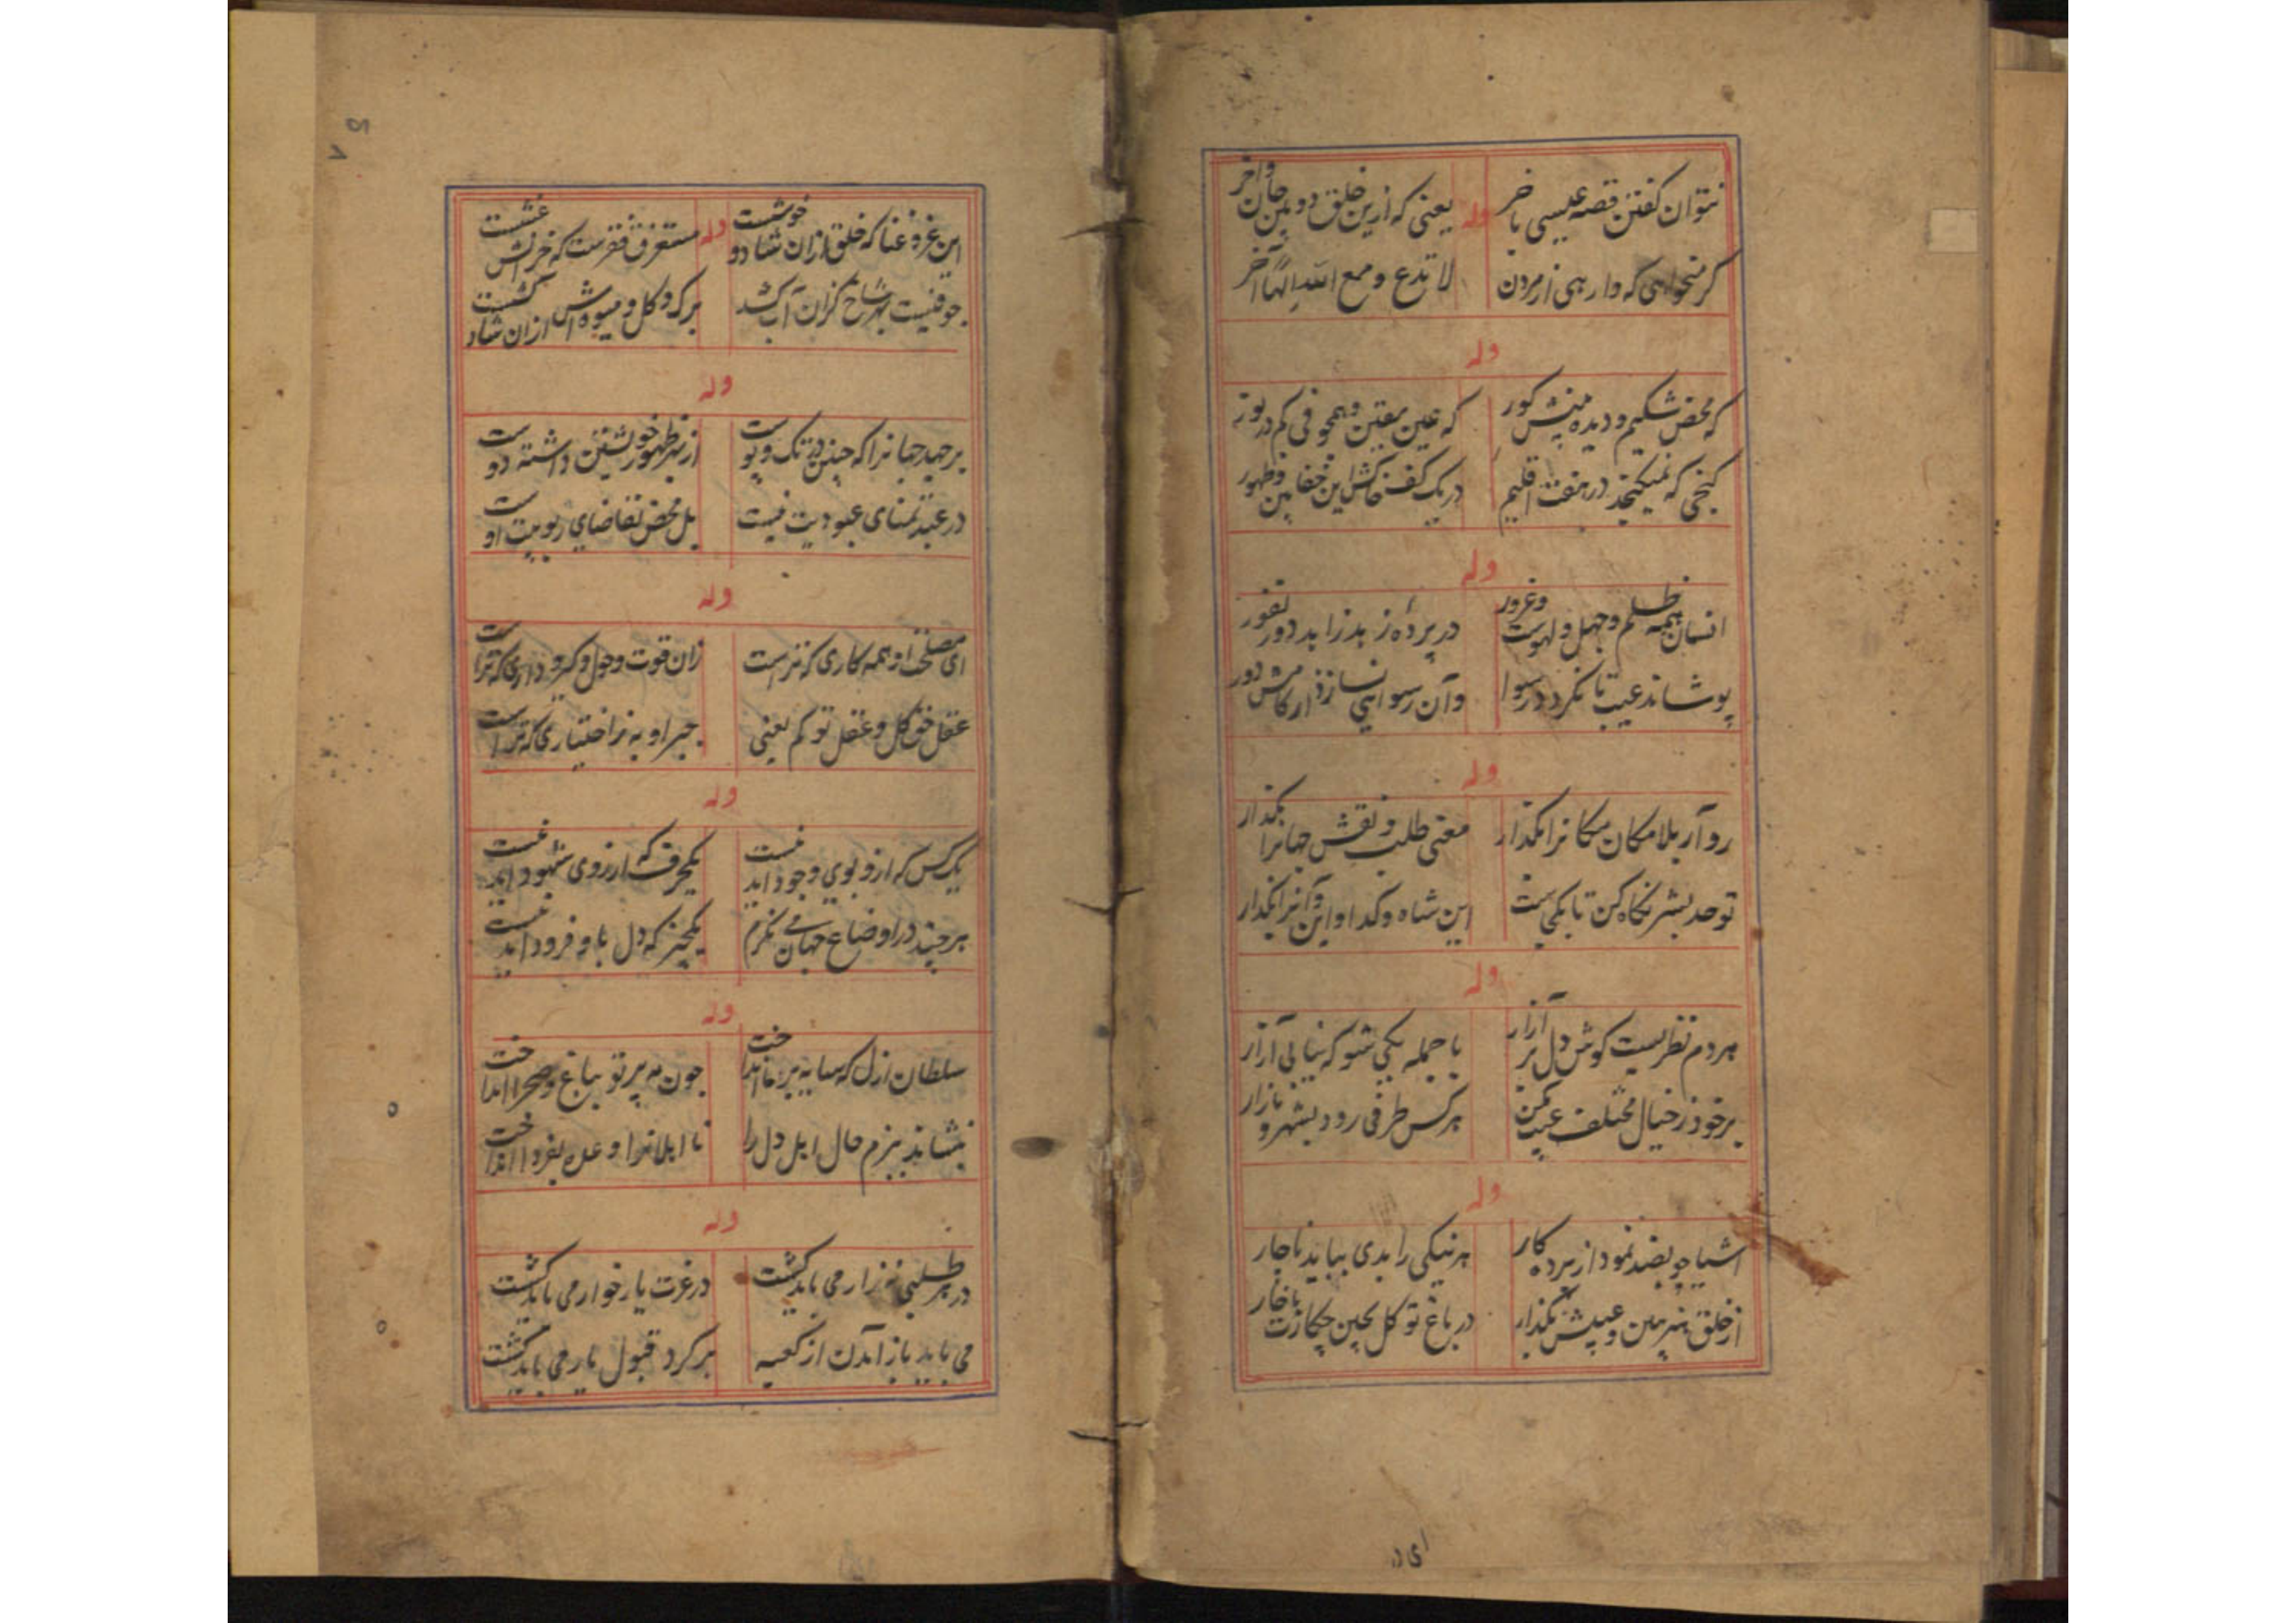 نتوان گفتن قصه عیسی با خر
وله
یعنی که ازین خلق دو بین جان واخر
گر میخواهی که وارهی از مردن
لا تدع و مع الله الهاً آخر
وله
که محض شکیم و دیده بینش کور
که عین یقین
گنجی که نمیگنجد در هفت اقلیم
در یک کف خاکش این خفا بین و ظهور
وله
انسان همه ظلم و جهل و لهوست وغرور
در پرده ز
پوشاند عیب تا نگردد رسوا
وان رسوایی نسازد از کامش دور
وله
رو آر بلامکان مکانرا بگذار
معنی طلب و نقش جهانرا بگذار
توحد بشر نگاه کن تا یکیست
این شاه و گدا و این و آنرا بگذار
وله
هر دم نظریست گوش دل بر آزار
با جمله یکی شو که نیابی آزار
بر خود ز خیال مختلف عیب مکن
هر کس طرفی رود بشهر و بازار
وله
اشیا چو بضد نمود از پرده کار
هر نیکی را بدی بباید ناچار
از خلق هنر بین و عیبش بگذار
در باغ تو گل بچین چکارت با خار
ای د
۵۸
این غره غنا که خلق ازان شاد و خوشست
وله
مستغرق فقرست که خرالش غشست
جو نیست بهر شاخ گران آب کشد
برگ و گل و میوه اش ازان شاد کشست
وله
بر جهید جهانرا که چنین در تک و پوست
از بهر ظهور خویشتن داشته دوست
در عبد تمنای عبودیت نیست
بل محض تقاضای ربوبیت اوست
وله
ای مصلحت او همه کاری که تراست
زان قوت وحول و کرو داری که تراست
عقل حق کل و عقل تو کم یعنی
جبر او به ز اختیاری که تراست
وله
یک کس که ازو بوی وجود آید نیست
یکحرف که از روی شهود آید نیست
هر چند در اوضاع جهان می نگرم
یکچیز که دل باو فرود آید نیست
وله
سلطان ازل که سایه بر ما انداخت
چون مه پرتو بباغ و صحرا انداخت
بنشاند ببزم حال اهل دل را
نا اهلانرا وعده بفردا انداخت
وله
در هر طلبی نزار می باید گشت
در عزت یار خوار می باید گشت
می باید باز آمدن از کعبه
بر گرد قبول یار می باید گشت